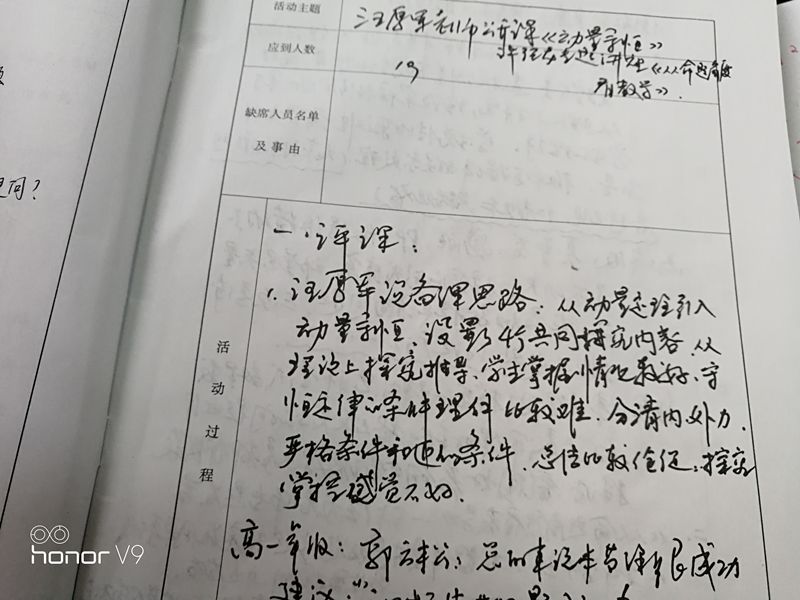 活动主题
汪厚军老师公开课《动量守恒》
许经东专题讲座《从命题角度
看教学》.
应到人数
19
缺席人员名单
及事由
是同?
活动过程
一、评课:
1.汪厚军说备课思路:从动量定理引入
动量守恒,设置了4个共同探究内容,从
理论上探究推导,学生掌握情况较好,守
恒定律的条件理解比较难.分清内外力,
严格条件和近似条件,总结比较仓促,探究
掌控感觉不好.
高一年级:郭 总的来说本节课很成功
建议
honor V9